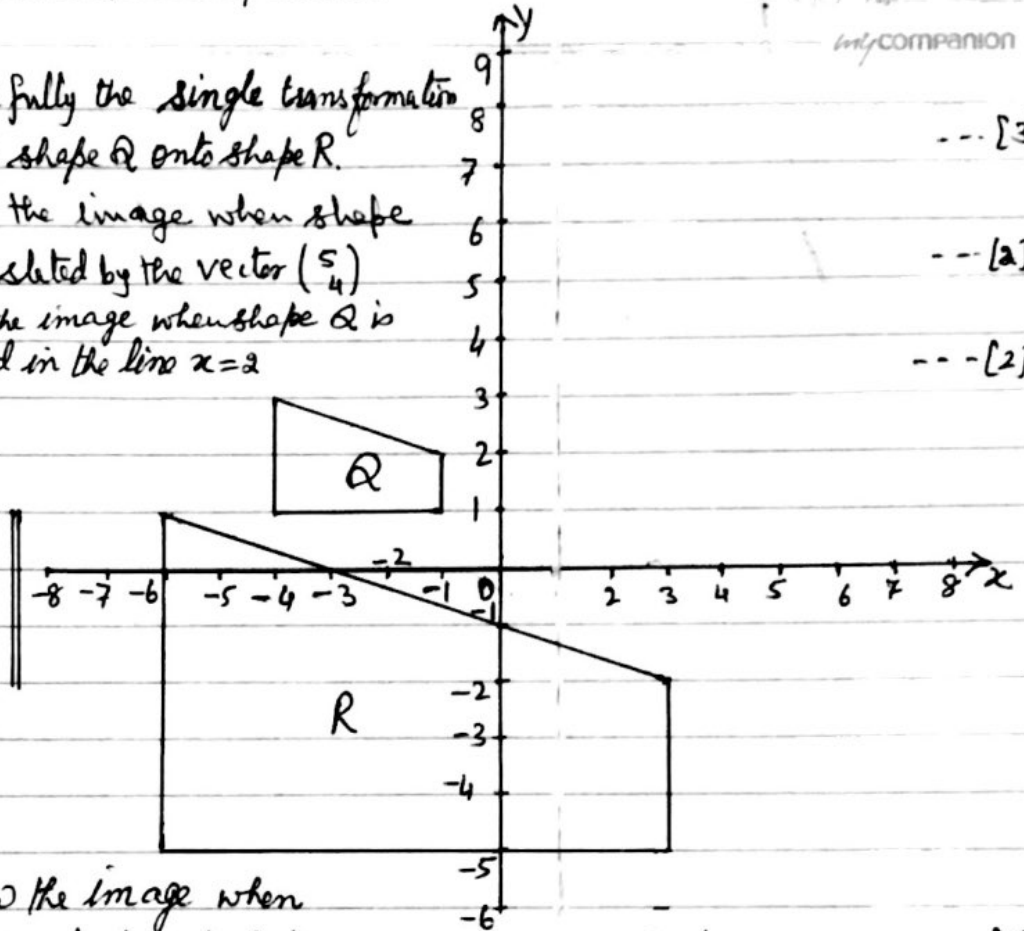 mycompanion
fully the single transformation
shape Q onto shape R.
--- [3
the image when shape
slated by the vector (5 4)
--- [2]
he image when shape Q is
d in the line x=2
--- [2]
y
9
8
7
6
5
4
3
2
1
Q
-8 -7 -6 -5 -4 -3 -2 -1 0 2 3 4 5 6 7 8 x
-1
-2
R
-3
-4
-5
the image when
-6